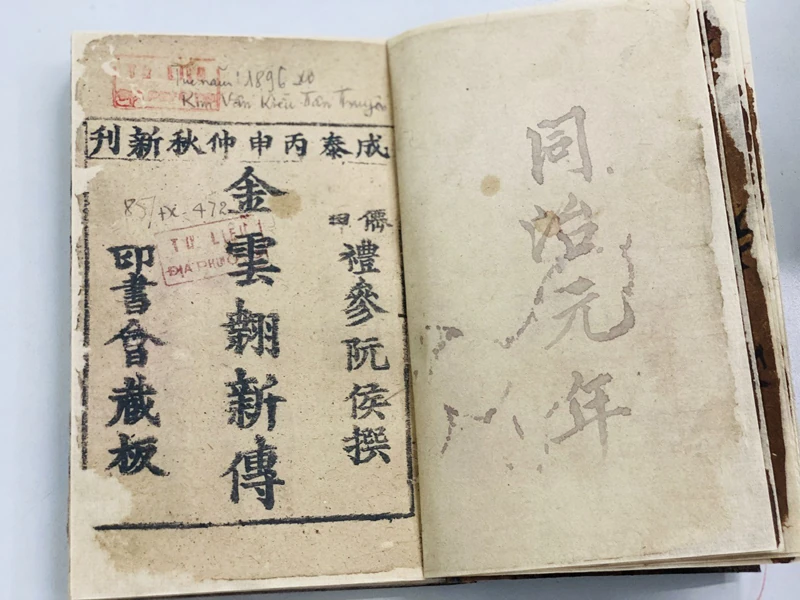 1896
Kim Vân Kiều tân truyện
成泰丙申仲秋新刊
僊田禮參阮侯撰
金雲翹新傳
印書會藏板
85/IX-472
TƯ LIỆU
同治元年